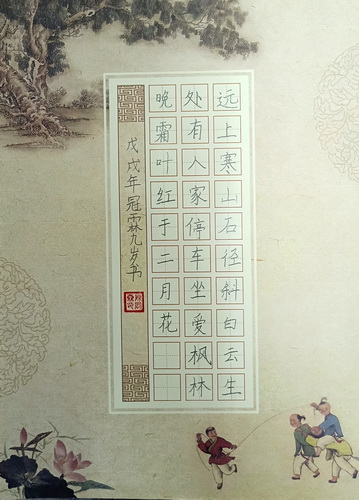 远上寒山石径斜白云生
处有人家停车坐爱枫林
晚霜叶红于二月花
戊戌年冠霖九岁书